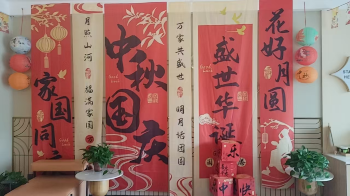 家国同
月照山河
福满家园
中秋国庆
万家共盛世
明月寄团圆
盛世华诞
花好月圆
乐
中
快